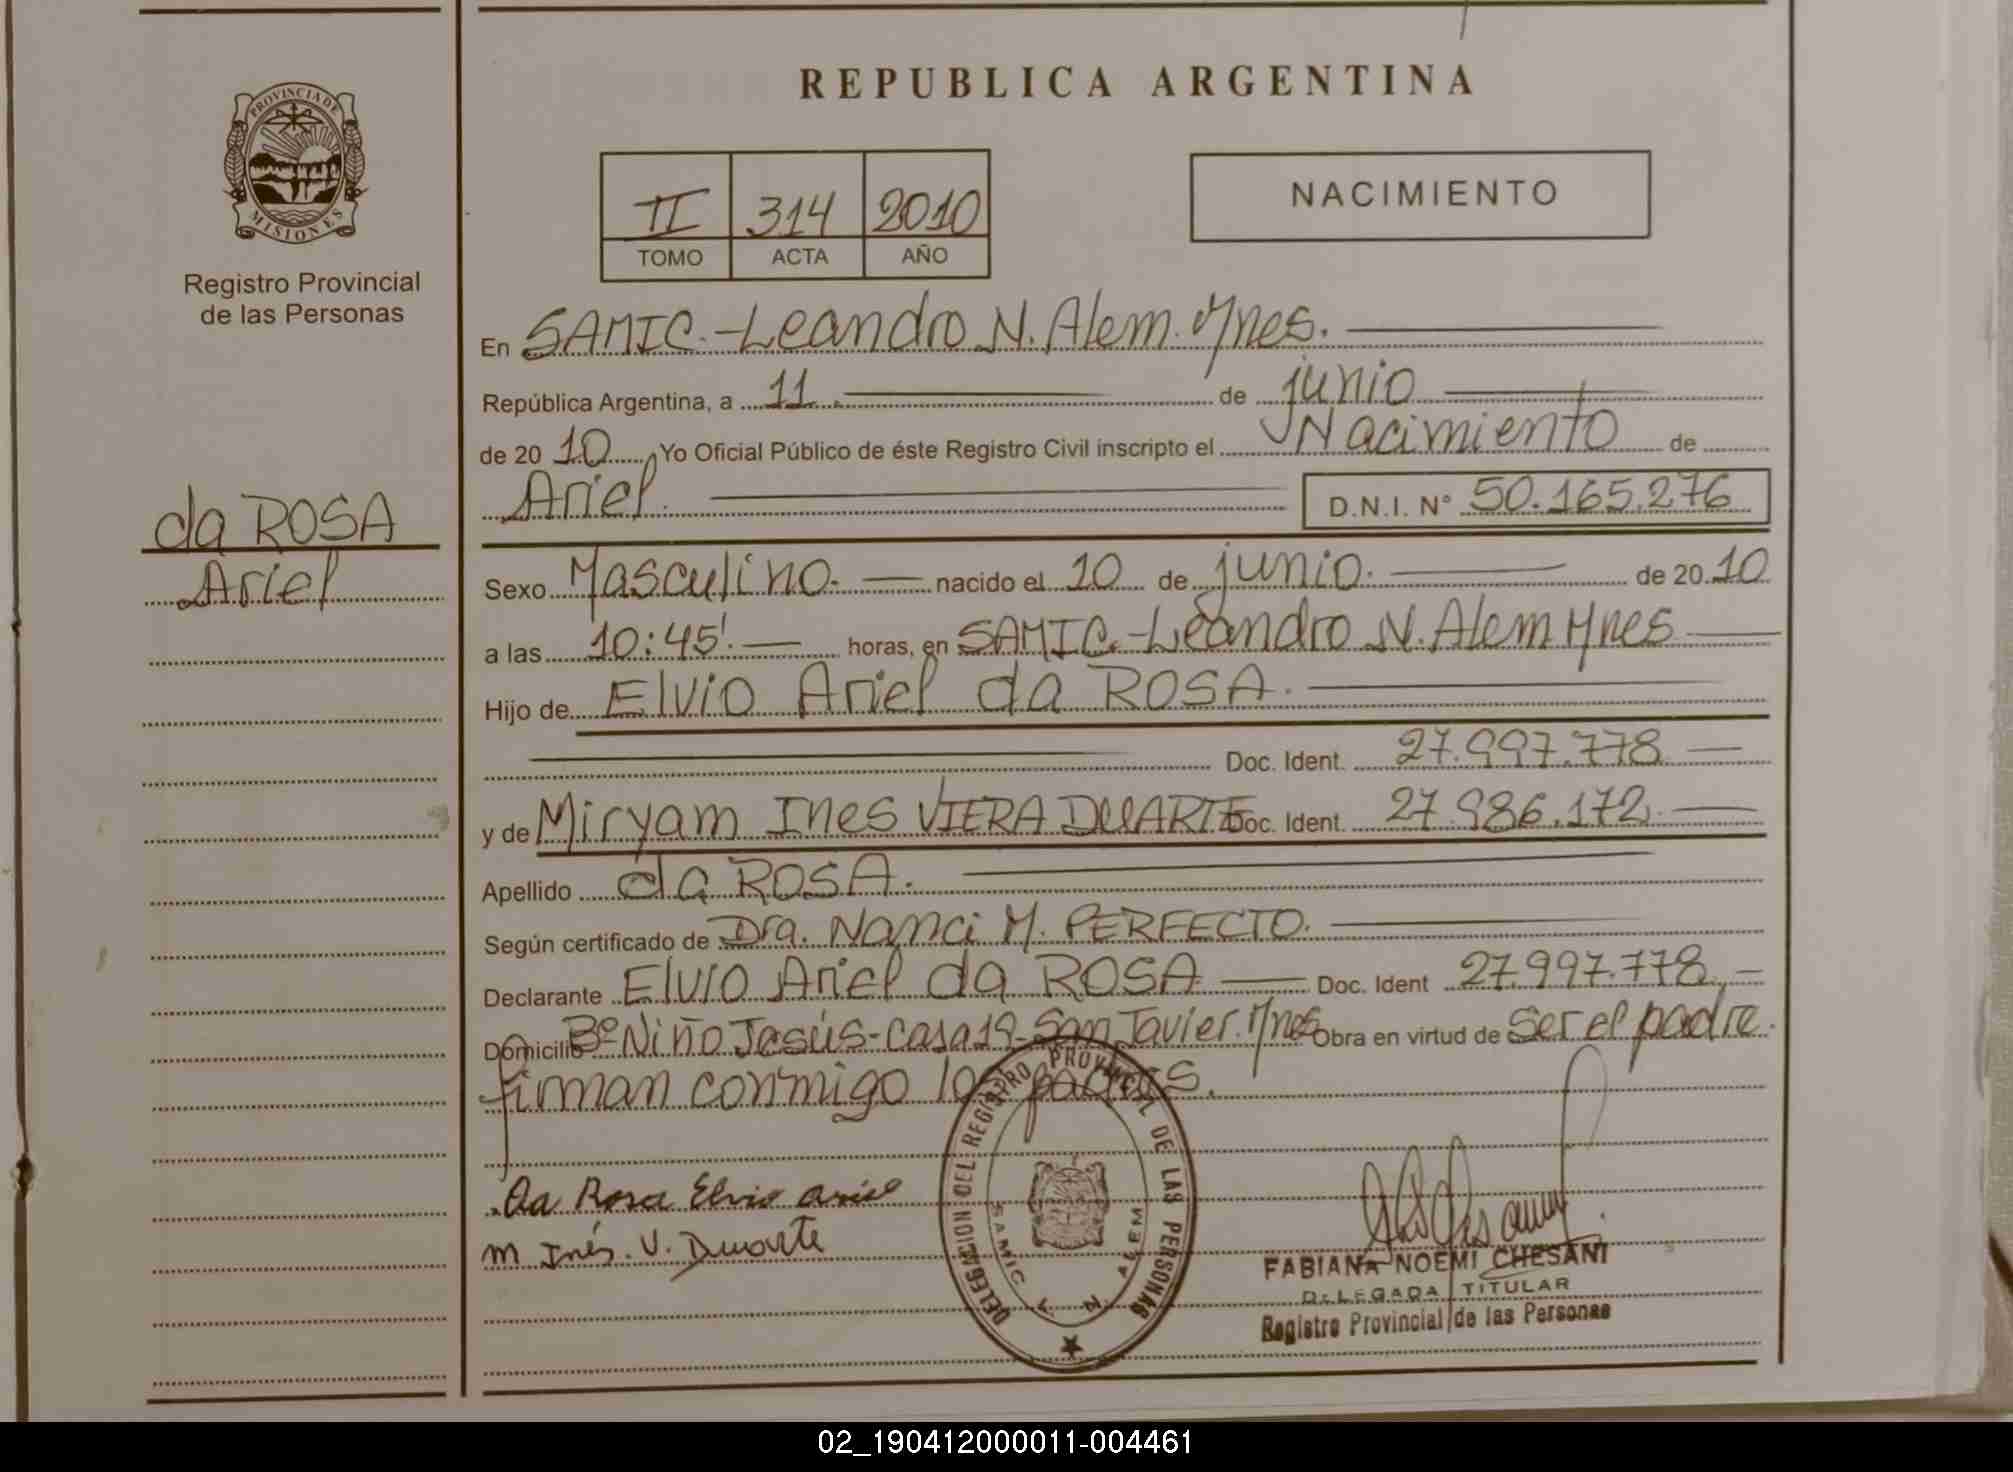 REPUBLICA ARGENTINA
PROVINCIA DE
MISIONES
Registro Provincial
de las Personas
II 314 2010
TOMO ACTA AÑO
NACIMIENTO
En SAMIC.-Leandro N. Alem. Mnes.
República Argentina, a 11. de junio
de 2010 Yo Oficial Público de éste Registro Civil inscripto el Nacimiento de
Ariel. D.N.I. N° 50.165.276
da ROSA
Ariel
Sexo Masculino. nacido el 10 de junio. de 2010
a las 10:45'. horas, en SAMIC.-Leandro N. Alem Mnes
Hijo de Elvio Ariel da ROSA.
Doc. Ident. 27.997.778
y de Miryam Ines VIERA DUARTE Doc. Ident. 27.986.172.
Apellido da ROSA.
Según certificado de Dra. Nanci M. PERFECTO.
Declarante Elvio Ariel da ROSA Doc. Ident 27.997.778.
Domicilio B° Niño Jesús-Casa 19-San Javier. Mnes Obra en virtud de ser el padre.
firman conmigo los padres.
da Rosa Elvio Ariel
M Inés. V. Duarte
DELEGACION DEL REGISTRO PROVINCIAL DE LAS PERSONAS
SAMIC L. N. ALEM
FABIANA NOEMI CHESANI
DELEGADA TITULAR
Registro Provincial de las Personas
02_190412000011-004461